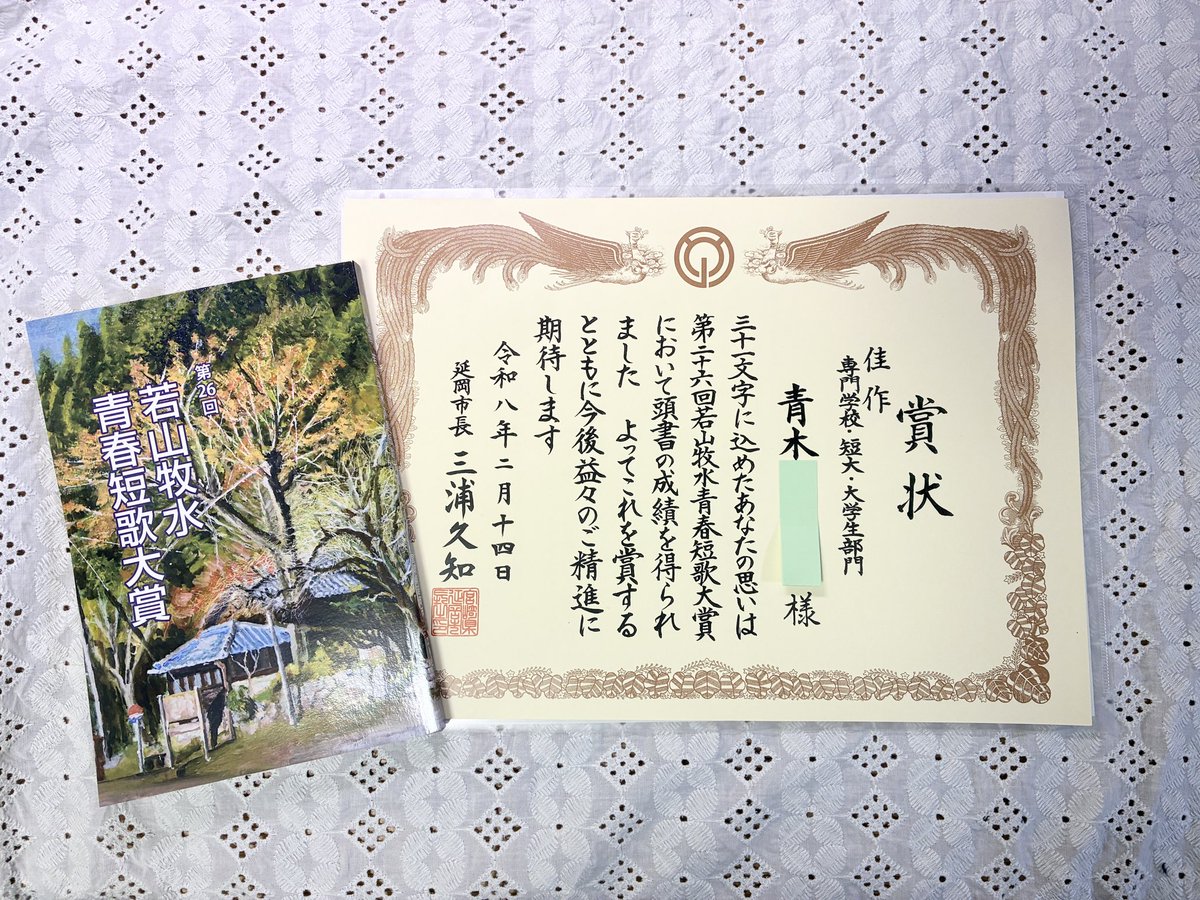 第26回
若山牧水
青春短歌大賞
賞状
佳作
専門学校・短大・大学生部門
青木
様
三十一文字に込めたあなたの思いは
第二十六回若山牧水青春短歌大賞
において頭書の成績を得られ
ました よってこれを賞する
とともに今後益々のご精進に
期待します
令和八年二月十四日
延岡市長 三浦久知